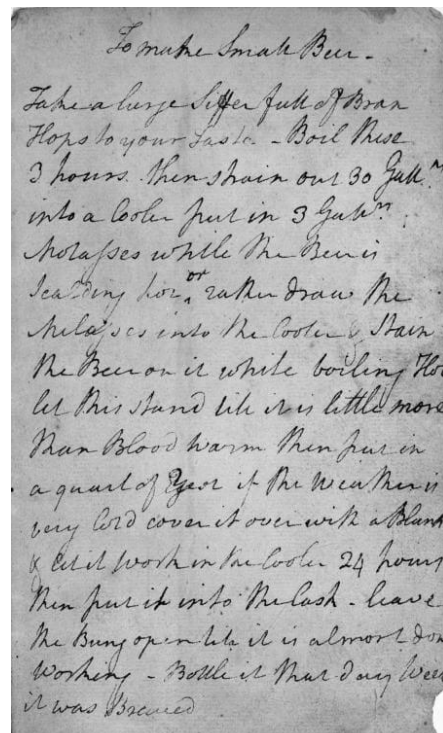 To make Small Beer -
Take a large Siffer full of Bran
Hops to your Taste - Boil these
3 hours. then strain out 30 Gall.ⁿ
into a Cooler put in 3 Gallⁿ
Molasses while the Beer is
Scalding hot or rather draw the
Molasses into the Cooler & Stain
the Beer on it while boiling Hot
let this stand till it is little more
than Blood warm then put in
a quart of Yest if the Weather is
very Cold cover it over with a Blank
& let it work in the Cooler 24 hours
then put it into the Cask - leave
the Bung open till it is almost don
Working - Bottle it that day Week
it was Brewed